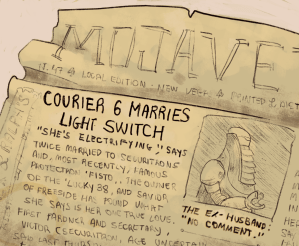 MOJAVE
LOCAL EDITION - NEW VEGAS
COURIER 6 MARRIES
LIGHT SWITCH
"SHE'S ELECTRIFYING!" SAYS
TWICE MARRIED TO SECURITRONS
AND, MOST RECENTLY, FAMOUS
PROTECTRON "FISTO". THE OWNER
OF THE LUCKY 38, AND SAVIOR
OF FREESIDE HAS FOUND WHAT
SHE SAYS IS HER ONE TRUE LOVE.
FIRST PARDNER AND SECRETARY,
VICTOR (SECURITRON, AGE UNCERTAIN
THE EX-HUSBAND:
"NO COMMENT."